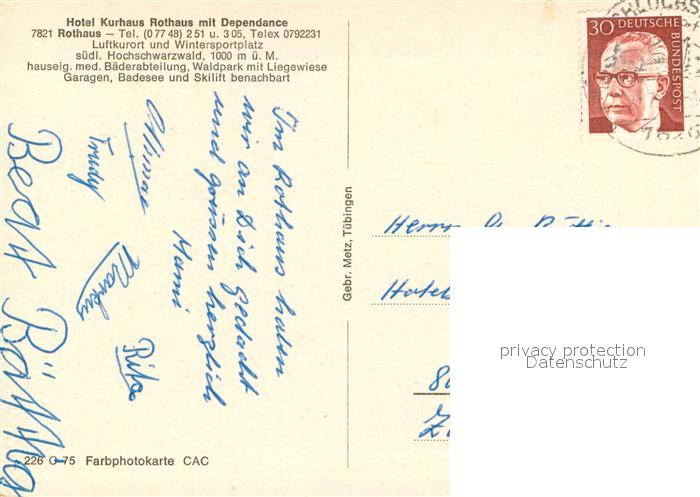 Hotel Kurhaus Rothaus mit Dependance
7821 Rothaus – Tel. (0 77 48) 2 51 u. 3 05, Telex 0792231
Luftkurort und Wintersportplatz
südl. Hochschwarzwald, 1000 m ü. M.
hauseig. med. Bäderabteilung, Waldpark mit Liegewiese
Garagen, Badesee und Skilift benachbart
Im Rothaus haben
wir an Dich gedacht
und grüssen herzlich
Mami
Trudy
Rita
Beat
226 O 75 Farbphotokarte CAC
Gebr. Metz, Tübingen
30 DEUTSCHE BUNDESPOST
Herrn
Hotel
privacy protection
Datenschutz